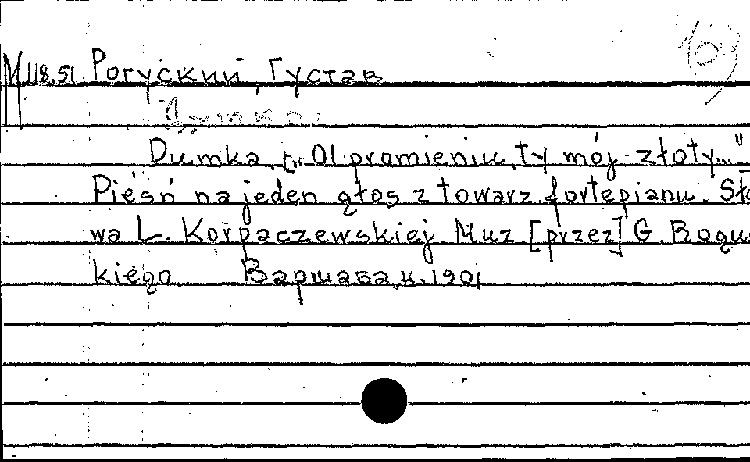 М 118.51 Рогуский, Густав
Думка.
Dumka. „O! promieniu, ty mój złoty..."
Pieśń na jeden głos z towarz. fortepianu. Sło
wa L. Korpaczewskiej. Muz [przez] G. Rogus
kiego Варшава, ц. 1901